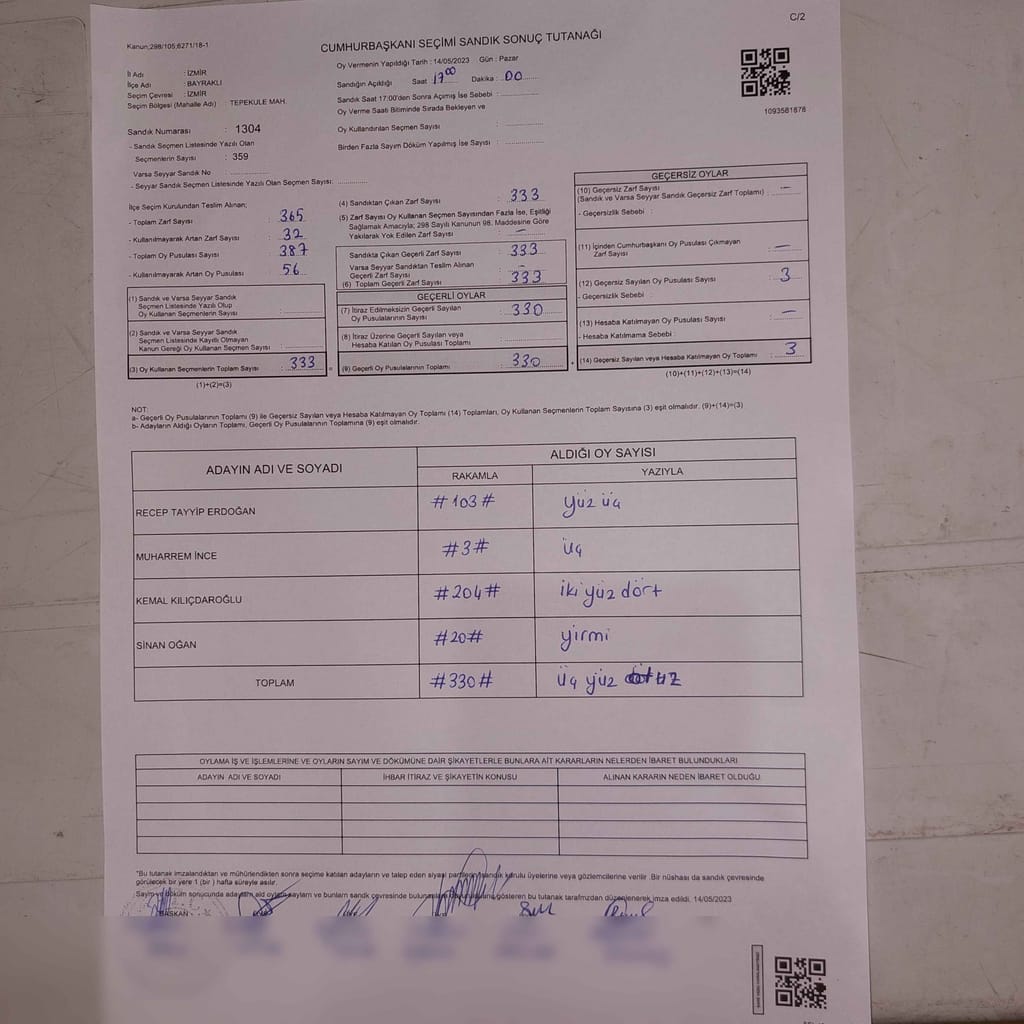 C/2
Kanun,298/105;6271/18-1
CUMHURBAŞKANI SEÇİMİ SANDIK SONUÇ TUTANAĞI
Oy Vermenin Yapıldığı Tarih : 14/05/2023 Gün : Pazar
İl Adı : İZMİR
İlçe Adı : BAYRAKLI
Seçim Çevresi : İZMİR
Seçim Bölgesi (Mahalle Adı) : TEPEKULE MAH.
Sandığın Açıldığı Saat 17 00 Dakika : 00
Sandık Saat 17:00'den Sonra Açımış İse Sebebi :
Oy Verme Saati Bitiminde Sırada Bekleyen ve
Oy Kullandırılan Seçmen Sayısı :
Birden Fazla Sayım Döküm Yapılmış İse Sayısı :
1093581878
Sandık Numarası : 1304
- Sandık Seçmen Listesinde Yazılı Olan
Seçmenlerin Sayısı : 359
Varsa Seyyar Sandık No :
- Seyyar Sandık Seçmen Listesinde Yazılı Olan Seçmen Sayısı:
İlçe Seçim Kurulundan Teslim Alınan;
- Toplam Zarf Sayısı : 365
- Kullanılmayarak Artan Zarf Sayısı : 32
- Toplam Oy Pusulası Sayısı : 387
- Kullanılmayarak Artan Oy Pusulası : 56
(1) Sandık ve Varsa Seyyar Sandık
Seçmen Listesinde Yazılı Olup
Oy Kullanan Seçmenlerin Sayısı :
(2) Sandık ve Varsa Seyyar Sandık
Seçmen Listesinde Kayıtlı Olmayan
Kanun Gereği Oy Kullanan Seçmen Sayısı :
(3) Oy Kullanan Seçmenlerin Toplam Sayısı : 333
(1)+(2)=(3)
(4) Sandıktan Çıkan Zarf Sayısı : 333
(5) Zarf Sayısı Oy Kullanan Seçmen Sayısından Fazla İse, Eşitliği
Sağlamak Amacıyla; 298 Sayılı Kanunun 98. Maddesine Göre
Yakılarak Yok Edilen Zarf Sayısı : —
Sandıkta Çıkan Geçerli Zarf Sayısı : 333
Varsa Seyyar Sandıktan Teslim Alınan
Geçerli Zarf Sayısı : —
(6) Toplam Geçerli Zarf Sayısı : 333
GEÇERLİ OYLAR
(7) İtiraz Edilmeksizin Geçerli Sayılan
Oy Pusulalarının Sayısı : 330
(8) İtiraz Üzerine Geçerli Sayılan veya
Hesaba Katılan Oy Pusulası Toplamı :
(9) Geçerli Oy Pusulalarının Toplamı : 330
GEÇERSİZ OYLAR
(10) Geçersiz Zarf Sayısı
(Sandık ve Varsa Seyyar Sandık Geçersiz Zarf Toplamı) : —
- Geçersizlik Sebebi :
(11) İçinden Cumhurbaşkanı Oy Pusulası Çıkmayan
Zarf Sayısı : —
(12) Geçersiz Sayılan Oy Pusulası Sayısı : 3
- Geçersizlik Sebebi :
(13) Hesaba Katılmayan Oy Pusulası Sayısı : —
- Hesaba Katılmama Sebebi :
(14) Geçersiz Sayılan veya Hesaba Katılmayan Oy Toplamı : 3
(10)+(11)+(12)+(13)=(14)
NOT:
a- Geçerli Oy Pusulalarının Toplamı (9) ile Geçersiz Sayılan veya Hesaba Katılmayan Oy Toplamı (14) Toplamları, Oy Kullanan Seçmenlerin Toplam Sayısına (3) eşit olmalıdır. (9)+(14)=(3)
b- Adayların Aldığı Oyların Toplamı, Geçerli Oy Pusulalarının Toplamına (9) eşit olmalıdır.
ADAYIN ADI VE SOYADI
ALDIĞI OY SAYISI
RAKAMLA YAZIYLA
RECEP TAYYİP ERDOĞAN #103# yüz üç
MUHARREM İNCE #3# üç
KEMAL KILIÇDAROĞLU #204# iki yüz dört
SİNAN OĞAN #20# yirmi
TOPLAM #330# üç yüz otuz
OYLAMA İŞ VE İŞLEMLERİNE VE OYLARIN SAYIM VE DÖKÜMÜNE DAİR ŞİKAYETLERLE BUNLARA AİT KARARLARIN NELERDEN İBARET BULUNDUKLARI
ADAYIN ADI VE SOYADI İHBAR İTİRAZ VE ŞİKAYETİN KONUSU ALINAN KARARIN NEDEN İBARET OLDUĞU
"Bu tutanak imzalandıktan ve mühürlendikten sonra seçime katılan adayların ve talep eden siyasi partilerin sandık kurulu üyelerine veya gözlemcilerine verilir .Bir nüshası da sandık çevresinde
görülecek bir yere 1 (bir ) hafta süreyle asılır.
Sayım ve döküm sonucunda adayların aid oyların sayısını ve bunların sandık çevresinde gösteren bu tutanak tarafımızdan düzenlenerek imza edildi. 14/05/2023
BAŞKAN